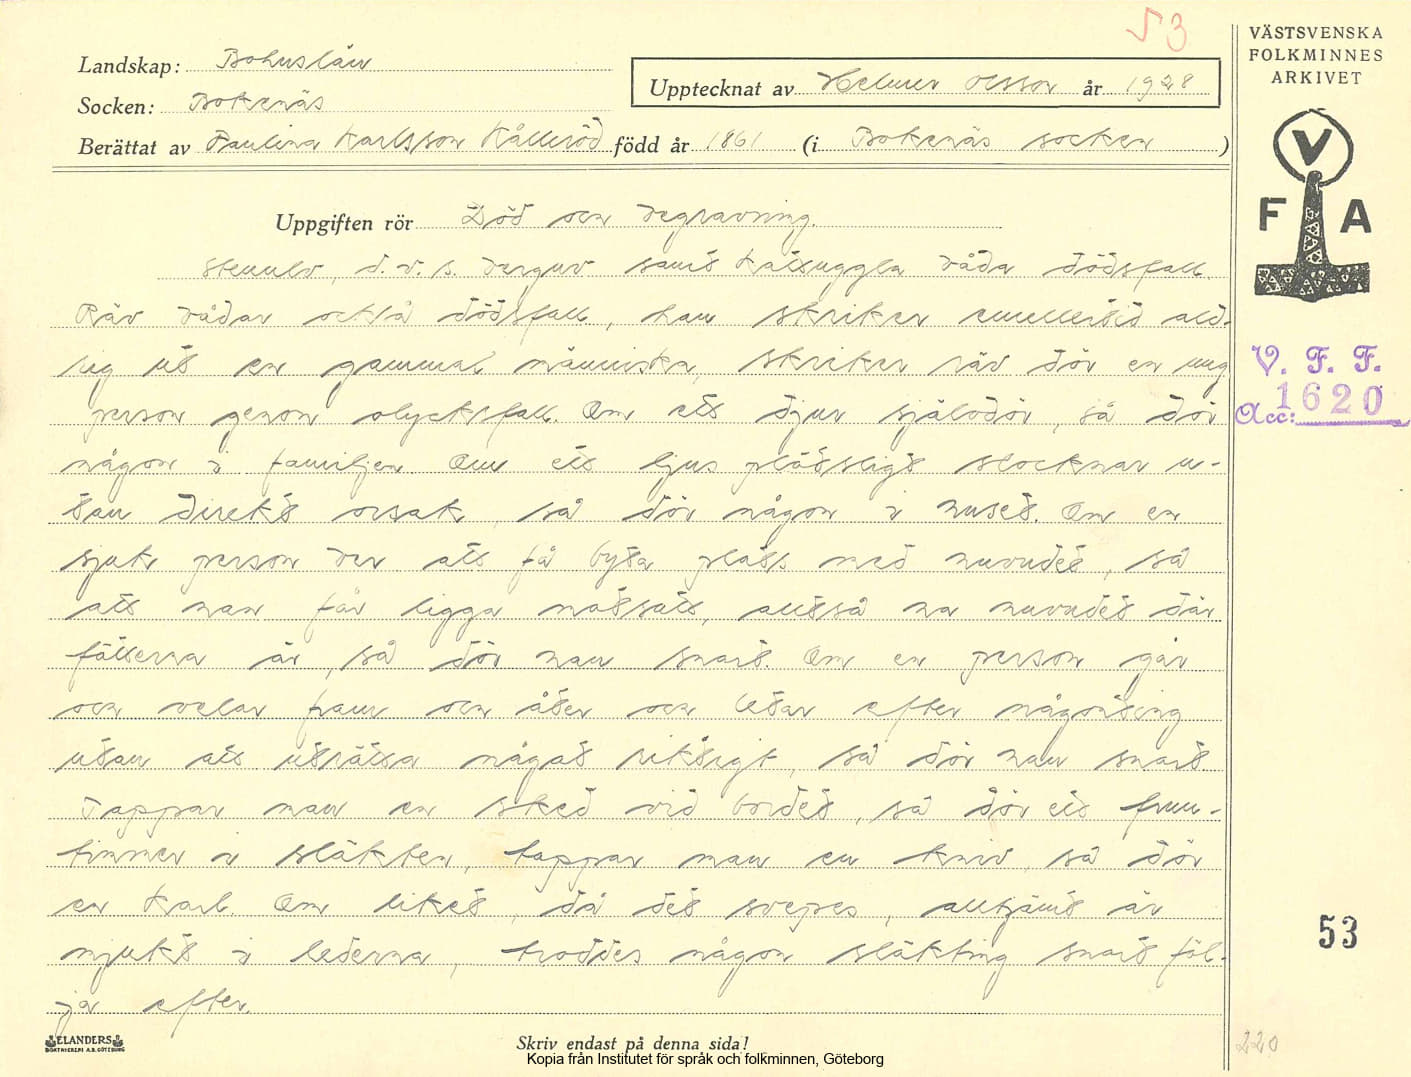 53
VÄSTSVENSKA
FOLKMINNES
ARKIVET
Landskap: Bohuslän
Upptecknat av Helmer Olsson år 1928
Socken: Bokenäs
Berättat av Paulina Karlsson Kålleröd född år 1861 (i Bokenäs socken )
V
F A
Uppgiften rör Död och begravning.
d. v. s. berguv samt kattuggla båda dödsfall.
Räv bådar också dödsfall, han skriker emellertid ald-
rig åt en gammal människa, skriker räv dör en ung
person genom olycksfall. Om ett djur självdör, så dör
någon i familjen. Om ett ljus plötsligt slocknar u-
tan direkt orsak, så dör någon i huset. Om en
sjuk person ber att få byta plats med huvudet, så
att han får ligga motsatt, alltså ha huvudet där
fötterna är, så dör han snart. Om en person går
och velar fram och åter och letar efter någonting
utan att uträtta något riktigt, så dör han snart
Tappar man en sked vid bordet, så dör ett frun-
timmer i släkten, tappar man en kniv, så dör
en karl. Om liket, då det svepes, alltjämt är
mjukt i lederna, troddes någon släkting snart föl-
ja efter.
V. F. F.
Acc: 1620
53
220
ELANDERS
BOKTRYCKERI A.B. GÖTEBORG
Skriv endast på denna sida!
Kopia från Institutet för språk och folkminnen, Göteborg